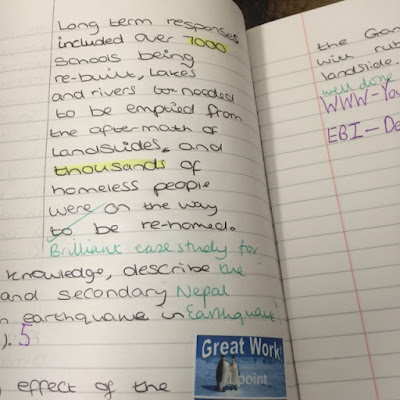 Long term responses
included over 7000
schools being
re-built, Lakes
and rivers needed
to be emptied from
the aftermath of
Landslides, and
thousands of
homeless people
were on the way
to be re-homed.
Brilliant case study for
knowledge, describe the
and secondary Nepal
earthquake in Earthquake.
). 5
Great Work!
1 point
effect of the
the Gan
with rub
landslide.
well done
WWW-You
EBI-De